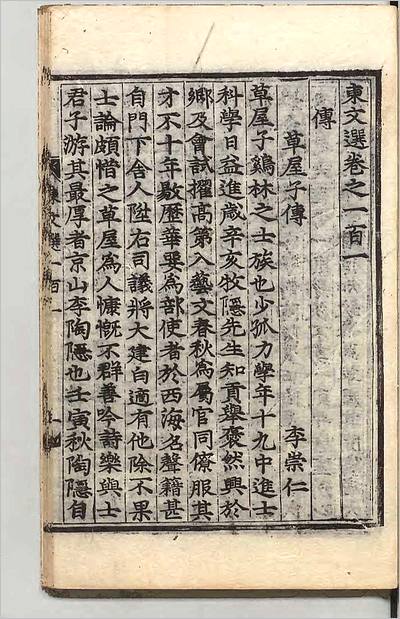 東文選卷之一百一
傳
草屋子傳 李崇仁
草屋子鷄林之士族也少孤力學年十九中進士
科學日益進歲辛亥牧隱先生知貢擧褎然興於
鄕及會試擢高第入藝文春秋爲屬官同僚服其
才不十年敭歷華要爲部使者於西海名聲籍甚
自門下舍人陞右司議將大建白適有他除不果
士論頗惜之草屋爲人慷慨不群善吟詩樂與士
君子游其最厚者京山李陶隱也壬寅秋陶隱自
東文選一百一